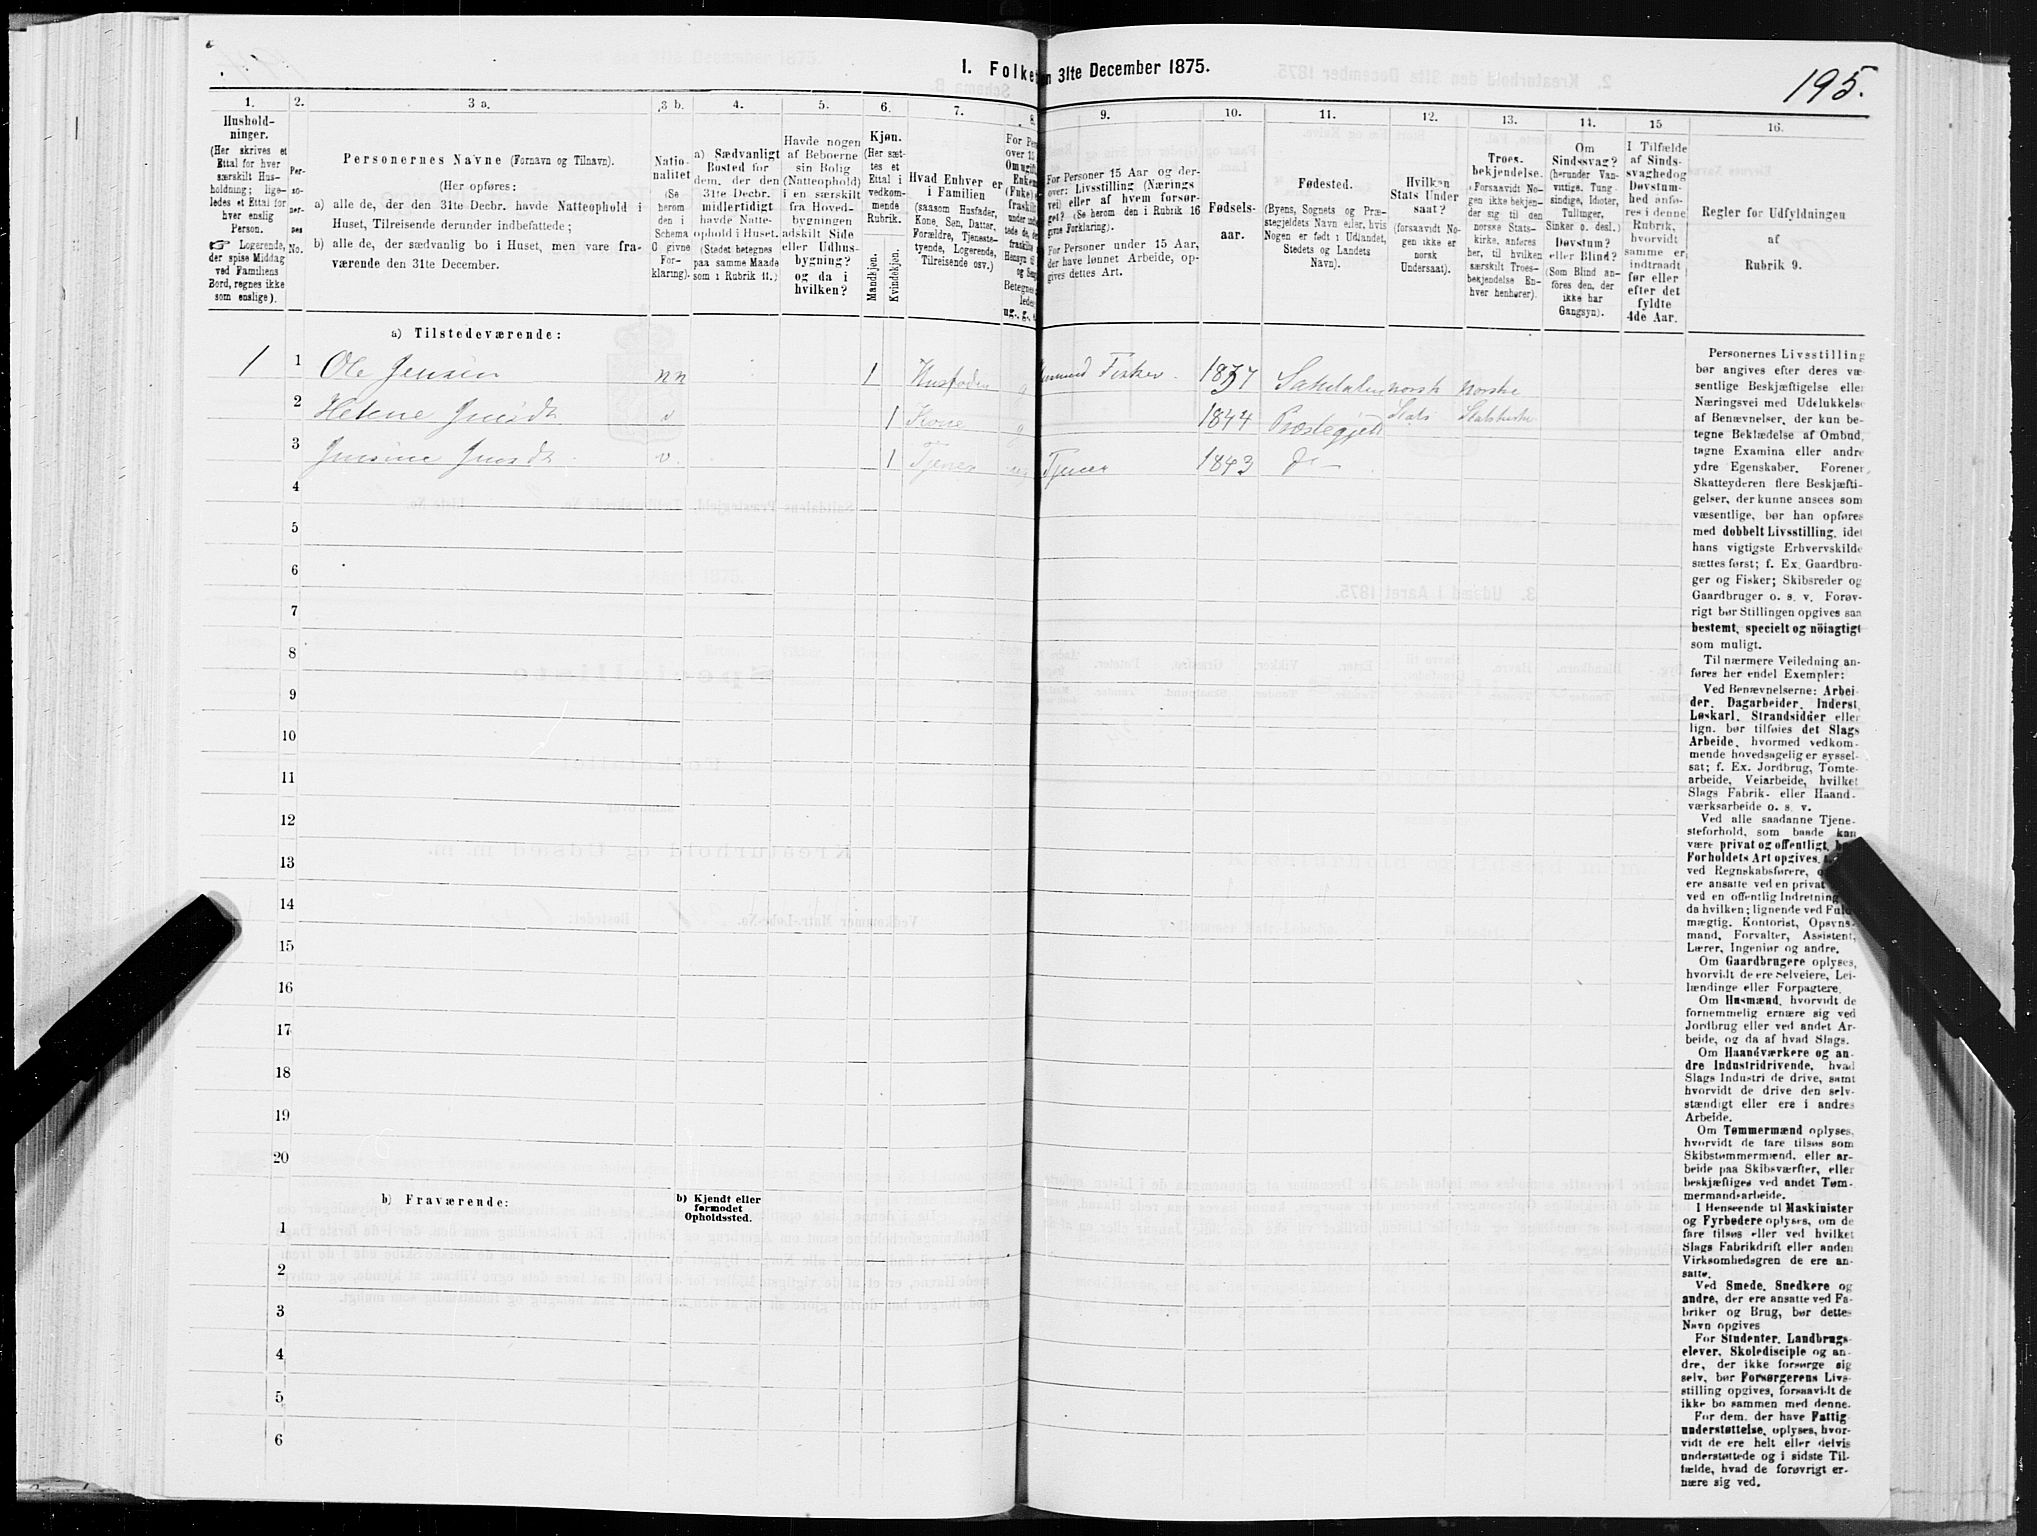 I. Folke
n 31te December 1875.
195.
1.
2.
3 a.
3 b.
4.
5.
6.
7.
8.
9.
10.
11.
12.
13.
14.
15
16.
Hushold-
ninger.
(Her skrives et
Ettal for hver
særskilt Hus-
holdning; lige-
ledes et Ettal for
hver enslig
Person.
☞ Logerende,
der spise Middag
ved Familiens
Bord, regnes ikke
som enslige).
Per-
so-
ner-
nes
No.
Personernes Navne (Fornavn og Tilnavn).
(Her opføres:
a) alle de, der den 31te Decbr. havde Natteophold i
Huset, Tilreisende derunder indbefattede;
b) alle de, der sædvanlig bo i Huset, men vare fra-
værende den 31te December.
Natio-
nalitet
(Se
herom
den i
Schema
C givne
For-
klaring).
a) Sædvanligt
Bosted for
dem, der den
31te Decbr.
midlertidigt
havde Natte-
ophold i Huset.
(Stedet betegnes
paa samme Maade
som i Rubrik 11.)
Havde nogen
af Beboerne
sin Bolig
(Natteophold)
i en særskilt
fra Hoved-
bygningen
adskilt Side
eller Udhus-
bygning?
og da i
hvilken?
Kjøn.
(Her sæt-
tes et
Ettal i
vedkom-
mende
Rubrik.
Mandkjøn.
Kvindekjøn.
Hvad Enhver er
i Familien
(saasom Husfader,
Kone, Søn, Datter,
Forældre, Tjeneste-
tyende, Logerende,
Tilreisende osv.)
For Pers
over 15
Omugift
Enkem
(Fuke)
fraskilt
under inde
tede de,
fraskilte
Hensyn til
og Seng
Betegnes
ledes
ug., g., e
For Personer 15 Aar og der-
over: Livsstilling (Nærings
vei) eller af hvem forsør-
get? (Se herom den i Rubrik 16
givne Forklaring).
For Personer under 15 Aar,
der have lønnet Arbeide, op-
gives dettes Art.
Fødsels-
aar.
Fødested.
(Byens, Sognets og Præ-
stegjeldets Navn eller, hvis
Nogen er født i Udlandet,
Stedets og Landets
Navn).
Hvilken
Stats Under
saat?
(forsaavidt No-
gen ikke er
norsk
Undersaat).
Troes-
bekjendelse.
(Forsaavidt No-
gen ikke bekjen-
der sig til den
norske Stats-
kirke, anføres
her, til hvilken
særskilt Troes-
bekjendelse En-
hver henhører).
Om
Sindssvag?
(herunder Van-
vittige, Tung-
sindige, Idioter,
Tullinger,
Sinker o. desl.)
Døvstum?
eller Blind?
(Som Blind an-
føres den, der
ikke har
Gangsyn).
I Tilfælde
af Sinds-
svaghedog
Døvstum-
hed anfø-
res i denne
Rubrik,
hvorvidt
samme er
indtraadt
før eller
efter det
fyldte
4de Aar.
Regler for Udfyldningen
af
Rubrik 9.
a) Tilstedeværende:
1 1 Ole Jensen nn 1 Husfader g Fisker. 1837 Saltdalen norsk norske
2 Helene 1 Kone g 1844 Præstegjeld Stats Statskirke
3 Jensine v. 1 Tjener Tjener 1843
4
5
6
7
8
9
10
11
12
13
14
15
16
17
18
19
20
b) Fraværende:
b) Kjendt eller
formodet
Opholdssted.
1
2
3
4
5
6
Personernes Livsstilling
bør angives efter deres væ-
sentlige Beskjæftigelse eller
Næringsvei med Udelukkelse
af Benævnelser, der kun be-
tegne Beklædelse af Ombud,
tagne Examina eller andre
ydre Egenskaber. Forener
Skatteyderen flere Beskjæfti-
gelser, der kunne ansees som
væsentlige, bør han opføres
med dobbelt Livsstilling, idet
hans vigtigste Erhvervskilde
sættes først; f. Ex. Gaardbru-
ger og Fisker; Skibsreder og
Gaardbruger o. s. v. Forøv-
rigt bør Stillingen opgives saa
bestemt, specielt og nöiagtigt
som muligt.
Til nærmere Veiledning an-
føres her endel Exempler:
Ved Benævnelserne: Arbei-
der, Dagarbeider, Inderst,
Løskarl, Strandsidder eller
lign. bør tilføies det Slags
Arbeide, hvormed vedkom-
mende hovedsagelig er syssel-
sat; f. Ex. Jordbrug, Tomte-
arbeide, Veiarbeide, hvilket
Slags Fabrik- eller Haand-
værksarbeide o. s. v.
Ved alle saadanne Tjene-
steforhold, som baade kan
være privat og offentligt,
Forholdets Art opgives,
ved Regnskabsførere,
ere ansatte ved en privat
ved en offentlig Indretning
da hvilken; lignende ved Fuld-
mægtig, Kontorist, Opsyns-
mand, Forvalter, Assistent,
Lærer, Ingeniør og andre.
Om Gaardbrugere oplyses,
hvorvidt de ere Selveiere, Lei-
lændinge eller Forpagtere.
Om Husmænd, hvorvidt de
fornemmelig ernære sig ved
Jordbrug eller ved andet Ar-
beide, og da af hvad Slags.
Om Haandværkere og an-
dre Industridrivende, hvad
Slags Industri de drive, samt
hvorvidt de drive den selv-
stændigt eller ere i andres
Arbeide.
Om Tømmermænd oplyses,
hvorvidt de fare tilsøs som
Skibstømmermænd, eller ar-
beide paa Skibsværfter, eller
beskjæftiges ved andet Tøm-
mermandsarbeide.
I Henseende til Maskinister
og Fyrbødere oplyses, om de
fare tilsøs eller ved hvilket
Slags Fabrikdrift eller anden
Virksomhedsgren de ere an-
satte.
Ved Smede, Snedkere og
andre, der ere ansatte ved Fa-
briker og Brug, bør dettes
Navn opgives
For Studenter, Landbrugs-
elever, Skoledisciple og an-
dre, der ikke forsørge sig
selv, bør Forsørgerens Livs-
stilling opgives, forsaavidt de
ikke bo sammen med denne.
For dem, der have Fattig-
understøttelse, oplyses, hvor-
vidt de ere helt eller delvis
understøttede og i sidste Til-
fælde, hvad de forøvrigt er-
nære sig ved.